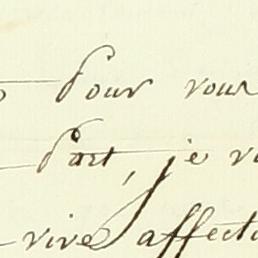 Pour vous
Part, je
vive affect